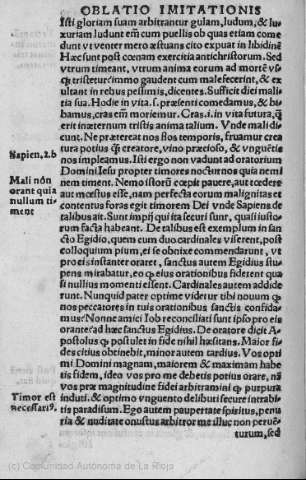 OBLATIO IMITATIONIS
Isti gloriam suam arbitrantur gulam, ludum, & lu-
xuriam ludunt em̃ cum puellis ob quas etiam come
dunt vt venter mero æstuans cito expuat in libidinē
Hæc sunt post cœnam exercitia antichristorum. Sed
vtrum timeant, vtrum anima eorum ad mortē vsꝙ
ꝙ tristetur: immo gaudent cum malefecerint, & ex
ultant in rebus pessimis, dicentes. Sufficit diei mali-
tia sua. Hodie in vita.s. præsenti comedamus, & bi
bamus, cras em̃ moriemur. Cras.i. in vita futura, ꝗ
erit inæternum tristis anima talium. Vnde mali di-
cunt. Ne prætereat nos flos temporis, fruamur crea
tura potius ꝙ creatore, vino præcioso, & vnguētis
nos impleamus. Isti ergo non vadunt ad oratorium
Domini Iesu propter timores nocturnos quia nemi
nem timent. Nemo istorū cœpit pauere, aut tædere
aut mœstus esse, nam perfecta eorum malignitas et
contentus foras egit timorem Dei vnde Sapiens de
talibus ait. Sunt impij qui ita securi sunt, quasi iusto-
rum facta habeant. De talibus est exemplum in san
cto Egidio, quem cum duo cardinales viserent, post
colloquium pium, et se obnixe commendarent, vt
pro eis instanter oraret, sanctus autem Egidius stu-
pens mirabatur, eo ꝙ eius orationibus fiderent qua
si nullius momenti essent. Cardinales autem addide
runt. Nunquid pater optime videtur tibi nouum ꝙ
nos peccatores in tuis orationibus sanctis confida-
mus: Nonne amici Iob reconciliati sunt ipso pro eis
orante: ad hæc sanctus Egidius. De oratore dicit A-
postolus ꝙ postulet in fide nihil hæsitans. Maior fi-
des citius obtinebit, minor autem tardius. Vos opti
mi Domini magnam, maiorem & maximam habe
tis fidem, ideo vos pro me debetis potius orare, nā
vos præ magnitudine fidei arbitramini ꝙ purpura
induti, & optimo vnguento delibuti secure intrabi-
tis paradisum. Ego autem paupertate spiritus, penu
ria & nuditate onustus arbitror me illuc non peruē-
turum, sed
Sapien.2.b
Mali nōn
orant quia
nullum ti-
ment
Timor est
necessari⁹.
(c) Comunidad Autónoma de La Rioja